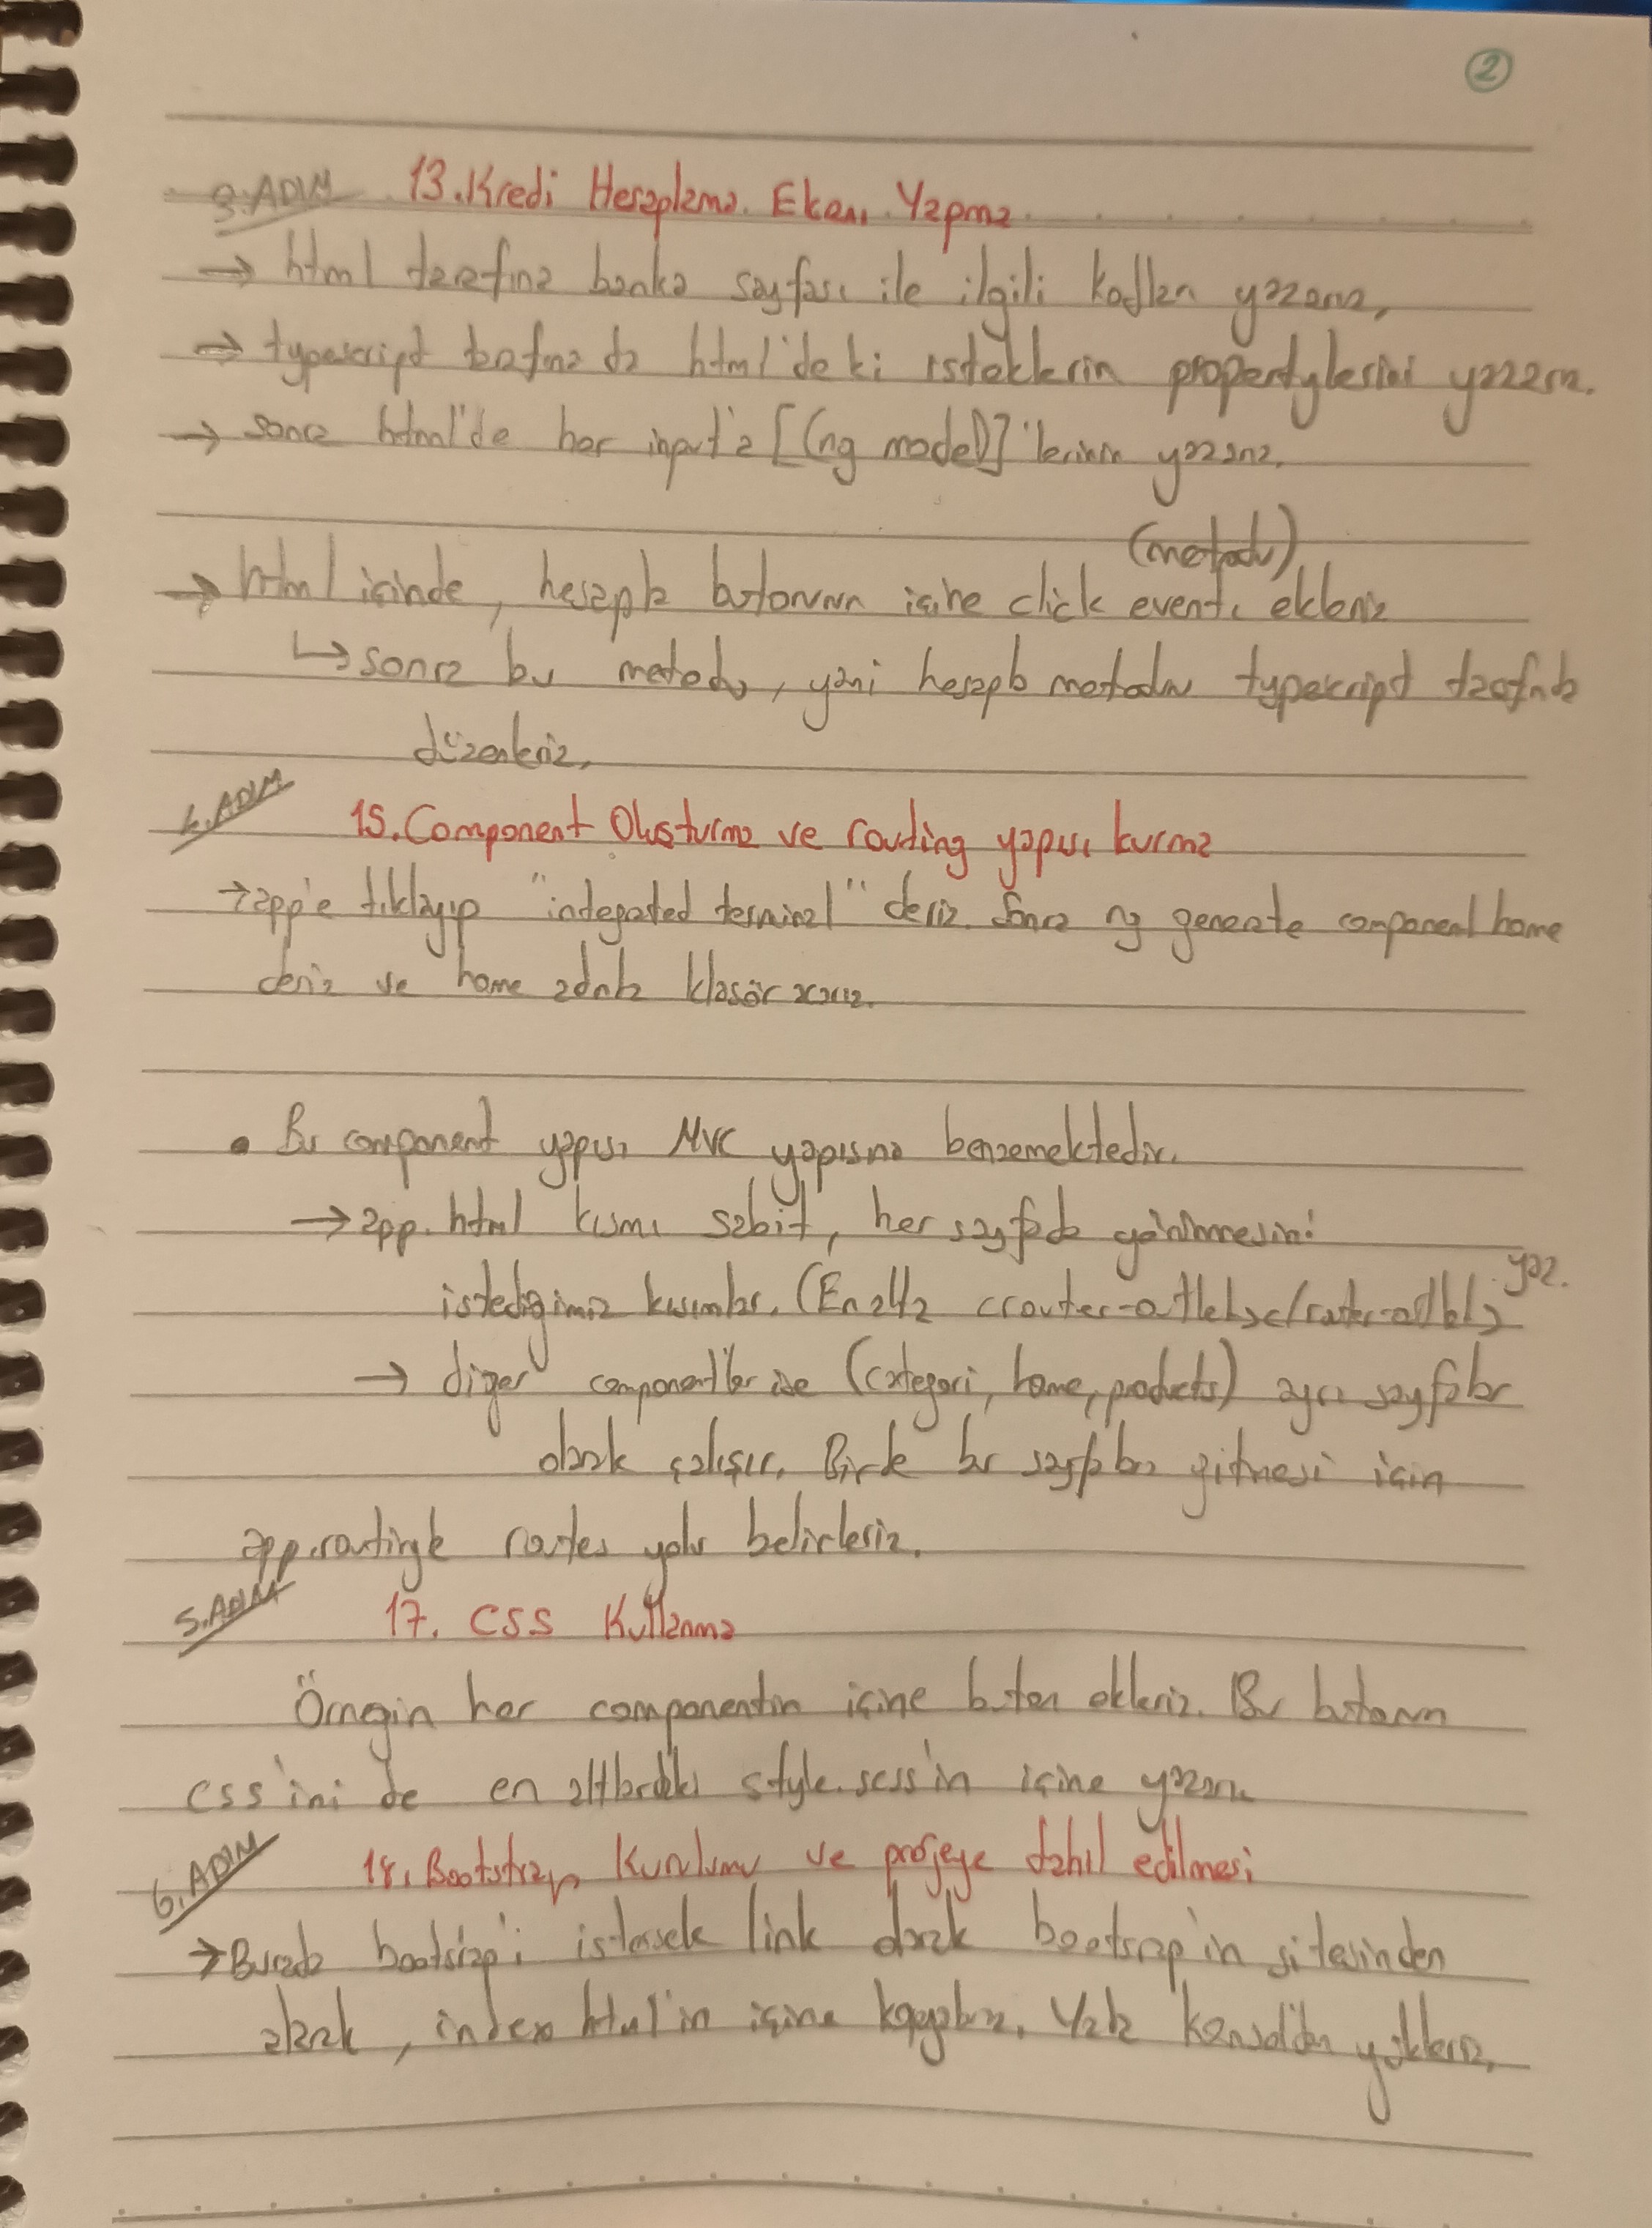 2
3.ADIM 13.Kredi Hesaplama Ekranı Yapma
→ html tarafına banka sayfası ile ilgili kodları yazarız,
→ typescript tarafına da html'deki isteklerin propertylerini yazarız.
→ sonra html'de her input'a [(ng model)]'lerinin yazarız.
(metodu)
→ html içinde, hesapla butonunun içine click eventı ekleriz
↳ sonra bu metodu, yani hesapla metodunu typescript tarafında
düzenleriz,
4.ADIM 15.Component Olusturma ve routing yapısı kurma
→ app'e tıklayıp "integrated terminal" deriz. Sonra ng generate component home
deriz ve home adında klasör
• Bu component yapısı MVC yapısına benzemektedir.
→ app.html kısmı sabit, her sayfada görünmesini
istediğimiz kısımlar. (En alta <router-outlet></router-outlet> yaz.
→ diger component'ler ise (categori, home, products) ayrı sayfalar
olarak çalışır. Birde bu sayfalara gitmesi için
app.routing'de routes yolu belirleriz.
5.ADIM 17. CSS Kullanma
Örnegin her componentin içine buton ekleriz. Bu butonun
css'ini de en altlardaki style.scss'in içine yazarız
6.ADIM 18.Bootstrap Kurulumu ve projeye dahil edilmesi
→ Burada bootsrap'i istersek link olarak bootsrap'in sitesinden
alarak, index html'in içine koyabiliriz. Yada konsoldan yükleriz,